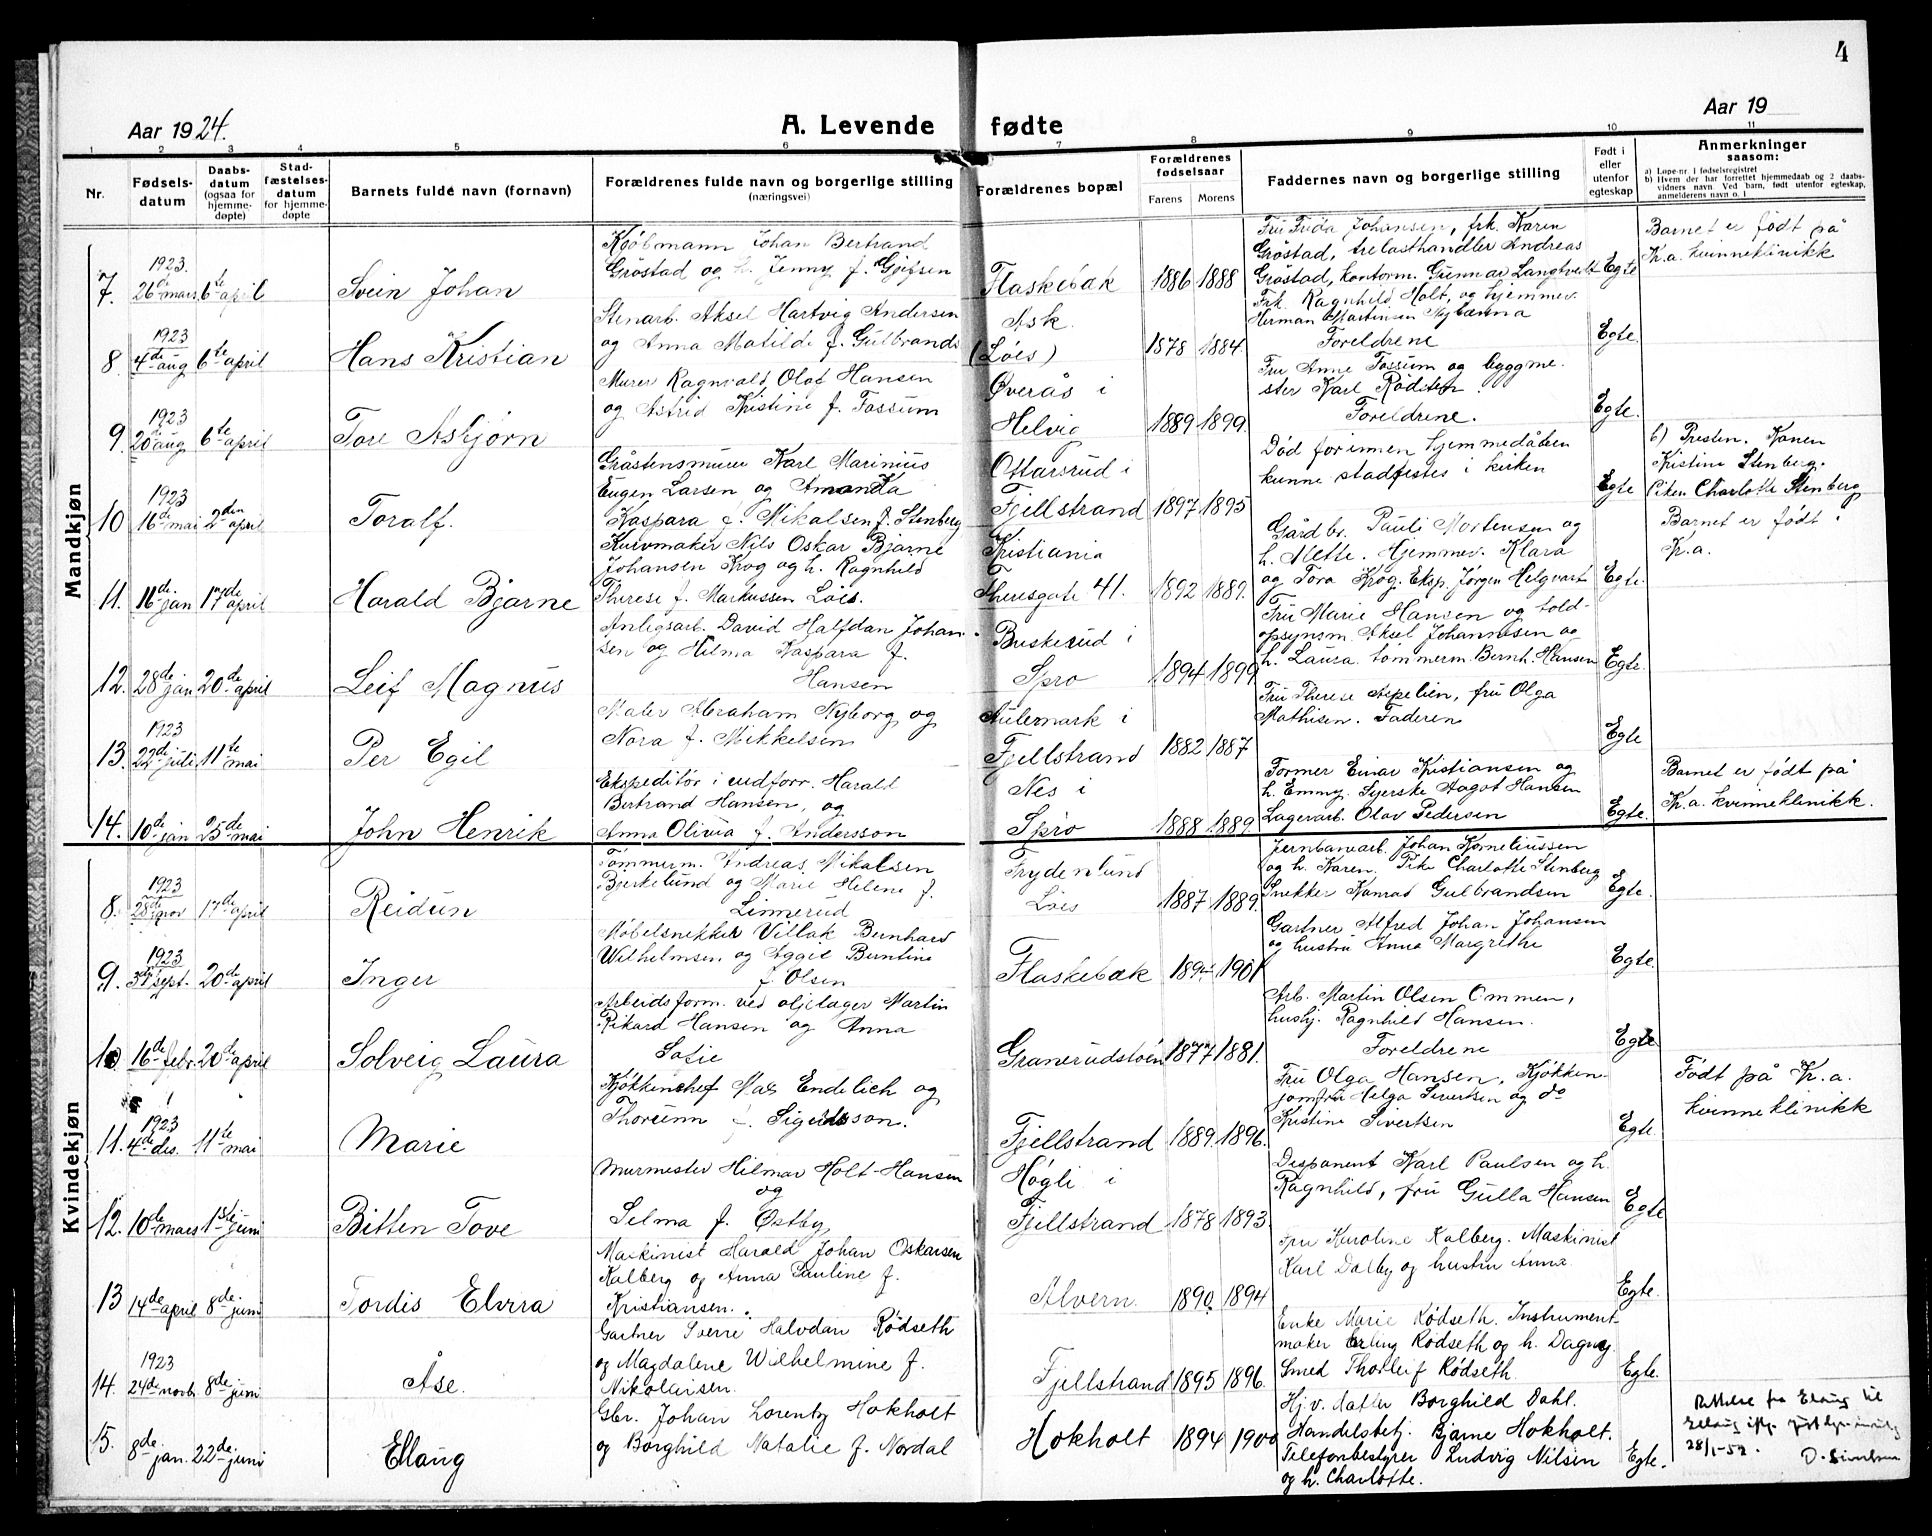 4
Aar 1924.
A. Levende fødte
Aar 19
1 2 3 4 5 6 7 8 9 10 11
Nr.
Fødsels-
datum
Daabs-
datum
(ogsaa for
hjemme-
døpte)
Stad-
fæstelses-
datum
for hjemme-
døpte
Barnets fulde navn (fornavn)
Forældrenes fulde navn og borgerlige stilling
(næringsvei)
Forældrenes bopæl
Forældrenes
fødselsaar
Farens Morens
Faddernes navn og borgerlige stilling
Født i
eller
utenfor
egteskap
Anmerkninger
saasom:
a) Løpe-nr. i fødselsregistret
b) Hvem der har forrettet hjemmedaab og 2 daabs-
vidners navn. Ved barn, født utenfor egteskap,
anmelderens navn o. l.
Mandkjøn
7. 1923. 26 mars 6te april
Svein Johan
Kjøbmann Johan Bertrand
Grøstad og h. Jenny f. Gjefsen
Flaskebæk
1886 1888
Fru Frida Johansen, frk. Karen
Grøstad, trelasthandler Andreas
Grøstad, kontorm. Gunnar Langtvedt
Frk. Ragnhild Holt, og hjemmev.
Egte
Barnet er født på
Kr.a. kvinneklinikk
8 1923 4de aug 6te april
Hans Kristian
Stenarb. Aksel Hartvig Andersen
og Anna Matilde f. Gulbrands
Ask.
(Løes)
1878 1884.
Herman Martinsen
Foreldrene
Egte.
9. 1923 20de aug 6te april
Tore Asbjørn
Murer Ragnvald Olaf Hansen
og Astrid Kristine f. Fossum
Øverås i
Helvig
1889 1899.
Fru Anne Fossum og byggme.
ster Karl Rødsten.
Foreldrene.
Egte.
10 1923 16de mai 2den april
Toralf.
Gråstensmurer Karl Marinius
Eugen Larsen og Amanda
Kaspara f. Mikalsen f. Stenberg
Ottarsrud i
Fjellstrand
1897 1895
Død forinnen hjemmedåben
kunne stadfestes i kirken
Egte
b) Presten. Konen
Kristine Stenberg.
Piken Charlotte Stenberg
11. 16de jan 17de april
Harald Bjarne
Kurvmaker Nils Oskar Bjarne
Johansen Krog og h. Ragnhild
Therese f. Markussen Løes.
Kristiania
Theresgate 41.
1892 1889.
Gårdbr. Pauli Mortensen og
h. Mette. Hjemmev. Klara
og Tora Krog. Eksp. Jørgen Helgvart
Egte.
Barnet er født i
Kr.a.
12. 28de jan 20de april
Leif Magnus
Anlegsarb. David Halfdan Johan-
sen og Hilma Kaspara f.
Hansen
Buskerud i
Spro
1894 1899
Fru Marie Hansen og told-
opsynsm. Aksel Johannesen og
h. Laura. tømmerm. Bernh. Hansen
Egte
13. 1923 22de juli 11te mai
Per Egil
Maler Abraham Nyborg og
Nora f. Mikkelsen
Aulemark i
Fjellstrand
1882 1887
Fru Therese Aspelien, fru Olga
Mathisen. Faderen
Egte
14. 10de jan 25de mai
John Henrik
Ekspeditør i rudforr. Harald
Bertrand Hansen, og
Anna Olivia f. Andersson
Nes i
Spro
1888 1889.
Former Einar Kristiansen og
h. Emmy. Syerske Aagot Hansen
Lagerarb. Olav Pedersen
Egte.
Barnet er født på
Kr.a. kvinneklinikk.
Kvindekjøn
8. 1923 28de nov 17de april
Reidun
Tømmerm. Andreas Mikalsen
Bjerkelund og Marie Helene f.
Linnerud
Frydenlund
Løes
1887 1889.
Jernbanearb. Johan Korneliussen
og h. Karen. Pike Charlotte Stenberg
Snekker Konrad Gulbrandsen
Egte.
9. 1923 3die sept. 20de april
Inger
Møbelsnekker Villak Bernhard
Wilhelmsen og Aggie Berntine
f. Olsen
Flaskebæk
1894 1901
Gartner Alfred Johan Johansen
og hustru Anna Margrethe
Egte.
10 16de febr. 20de april
Solveig Laura
Arbeidsform. ved oljelager Martin
Rikard Hansen og Anna
Sofie
Granerudstøen
1877 1881.
Arb. Martin Olsen Ommen,
hushj. Ragnhild Hansen.
Foreldrene
Egte
11. 1923 4de des. 11te mai
Marie
Kjøkkenchef Max Endelich og
Thorunn f. Sigurdsson.
Fjellstrand
1889. 1896.
Fru Olga Hansen, Kjøkken-
jomfru Helga Sivertsen og do
Kristine Sivertsen
Egte.
Født på Kr.a.
kvinneklinikk
12. 10de mars 1ste juni
Bitten Tove
Murmester Hilmar Holt-Hansen
og
Selma f. Østby
Høgli i
Fjellstrand
1878 1893.
Disponent Karl Paulsen og h.
Ragnhild, fru Gulla Hansen
Egte
13 14de april 8de juni
Tordis Elvira
Maskinist Harald Johan Oskarsen
Kalberg og Anna Pauline f.
Kristiansen.
Alvern.
1890. 1894
Fru Karoline Kalberg. Maskinist
Karl Dalby og hustru Anna
Egte.
14. 1923 24de novb. 8de juni
Åse.
Gartner Sverre Halvdan Rødseth
og Magdalene Wilhelmine f.
Nikolaisen.
Fjellstrand
1895 1896.
Enke Marie Rødseth. Instrument
maker Erling Rødseth og h. Dagny.
Smed Thorleif Rødseth.
Egte.
15. 8de jan. 22de juni
Ellaug
Gbr. Johan Lorentz Hokholt
og Borghild Natalie f. Nordal
Hokholt
1894 1900
Hj.v. datter Borghild Dahl.
Handelsbetj. Bjarne Hokholt.
Telefonbestyrer Ludvig Nilsen
og h. Charlotte.
Egte.
Rettelse fra Elaug til
Ellaug iflg.
28/1-52.